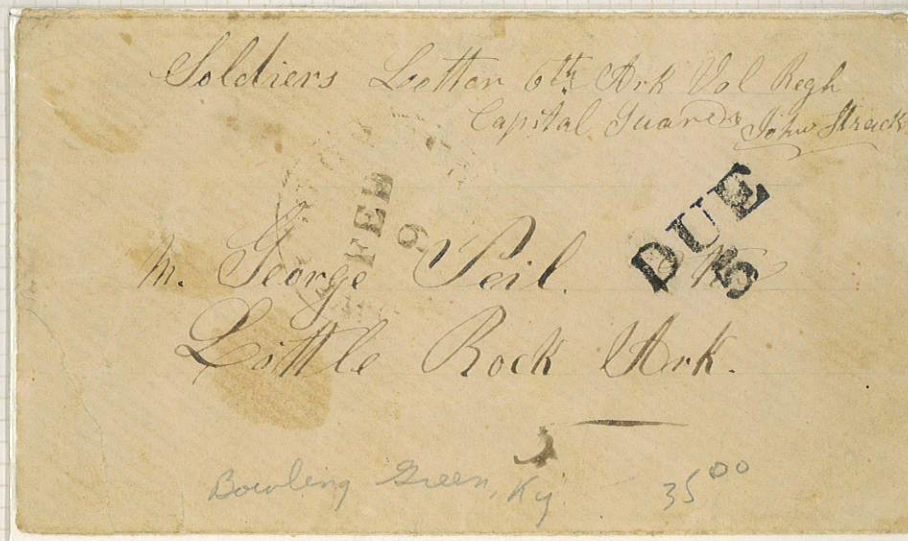 Soldiers Letter 6th Ark Vol Regt
Capital Guards John Strack
FEB
9
DUE
5
M. George Peil.
Little Rock Ark.
Bowling Green, Ky 35 00